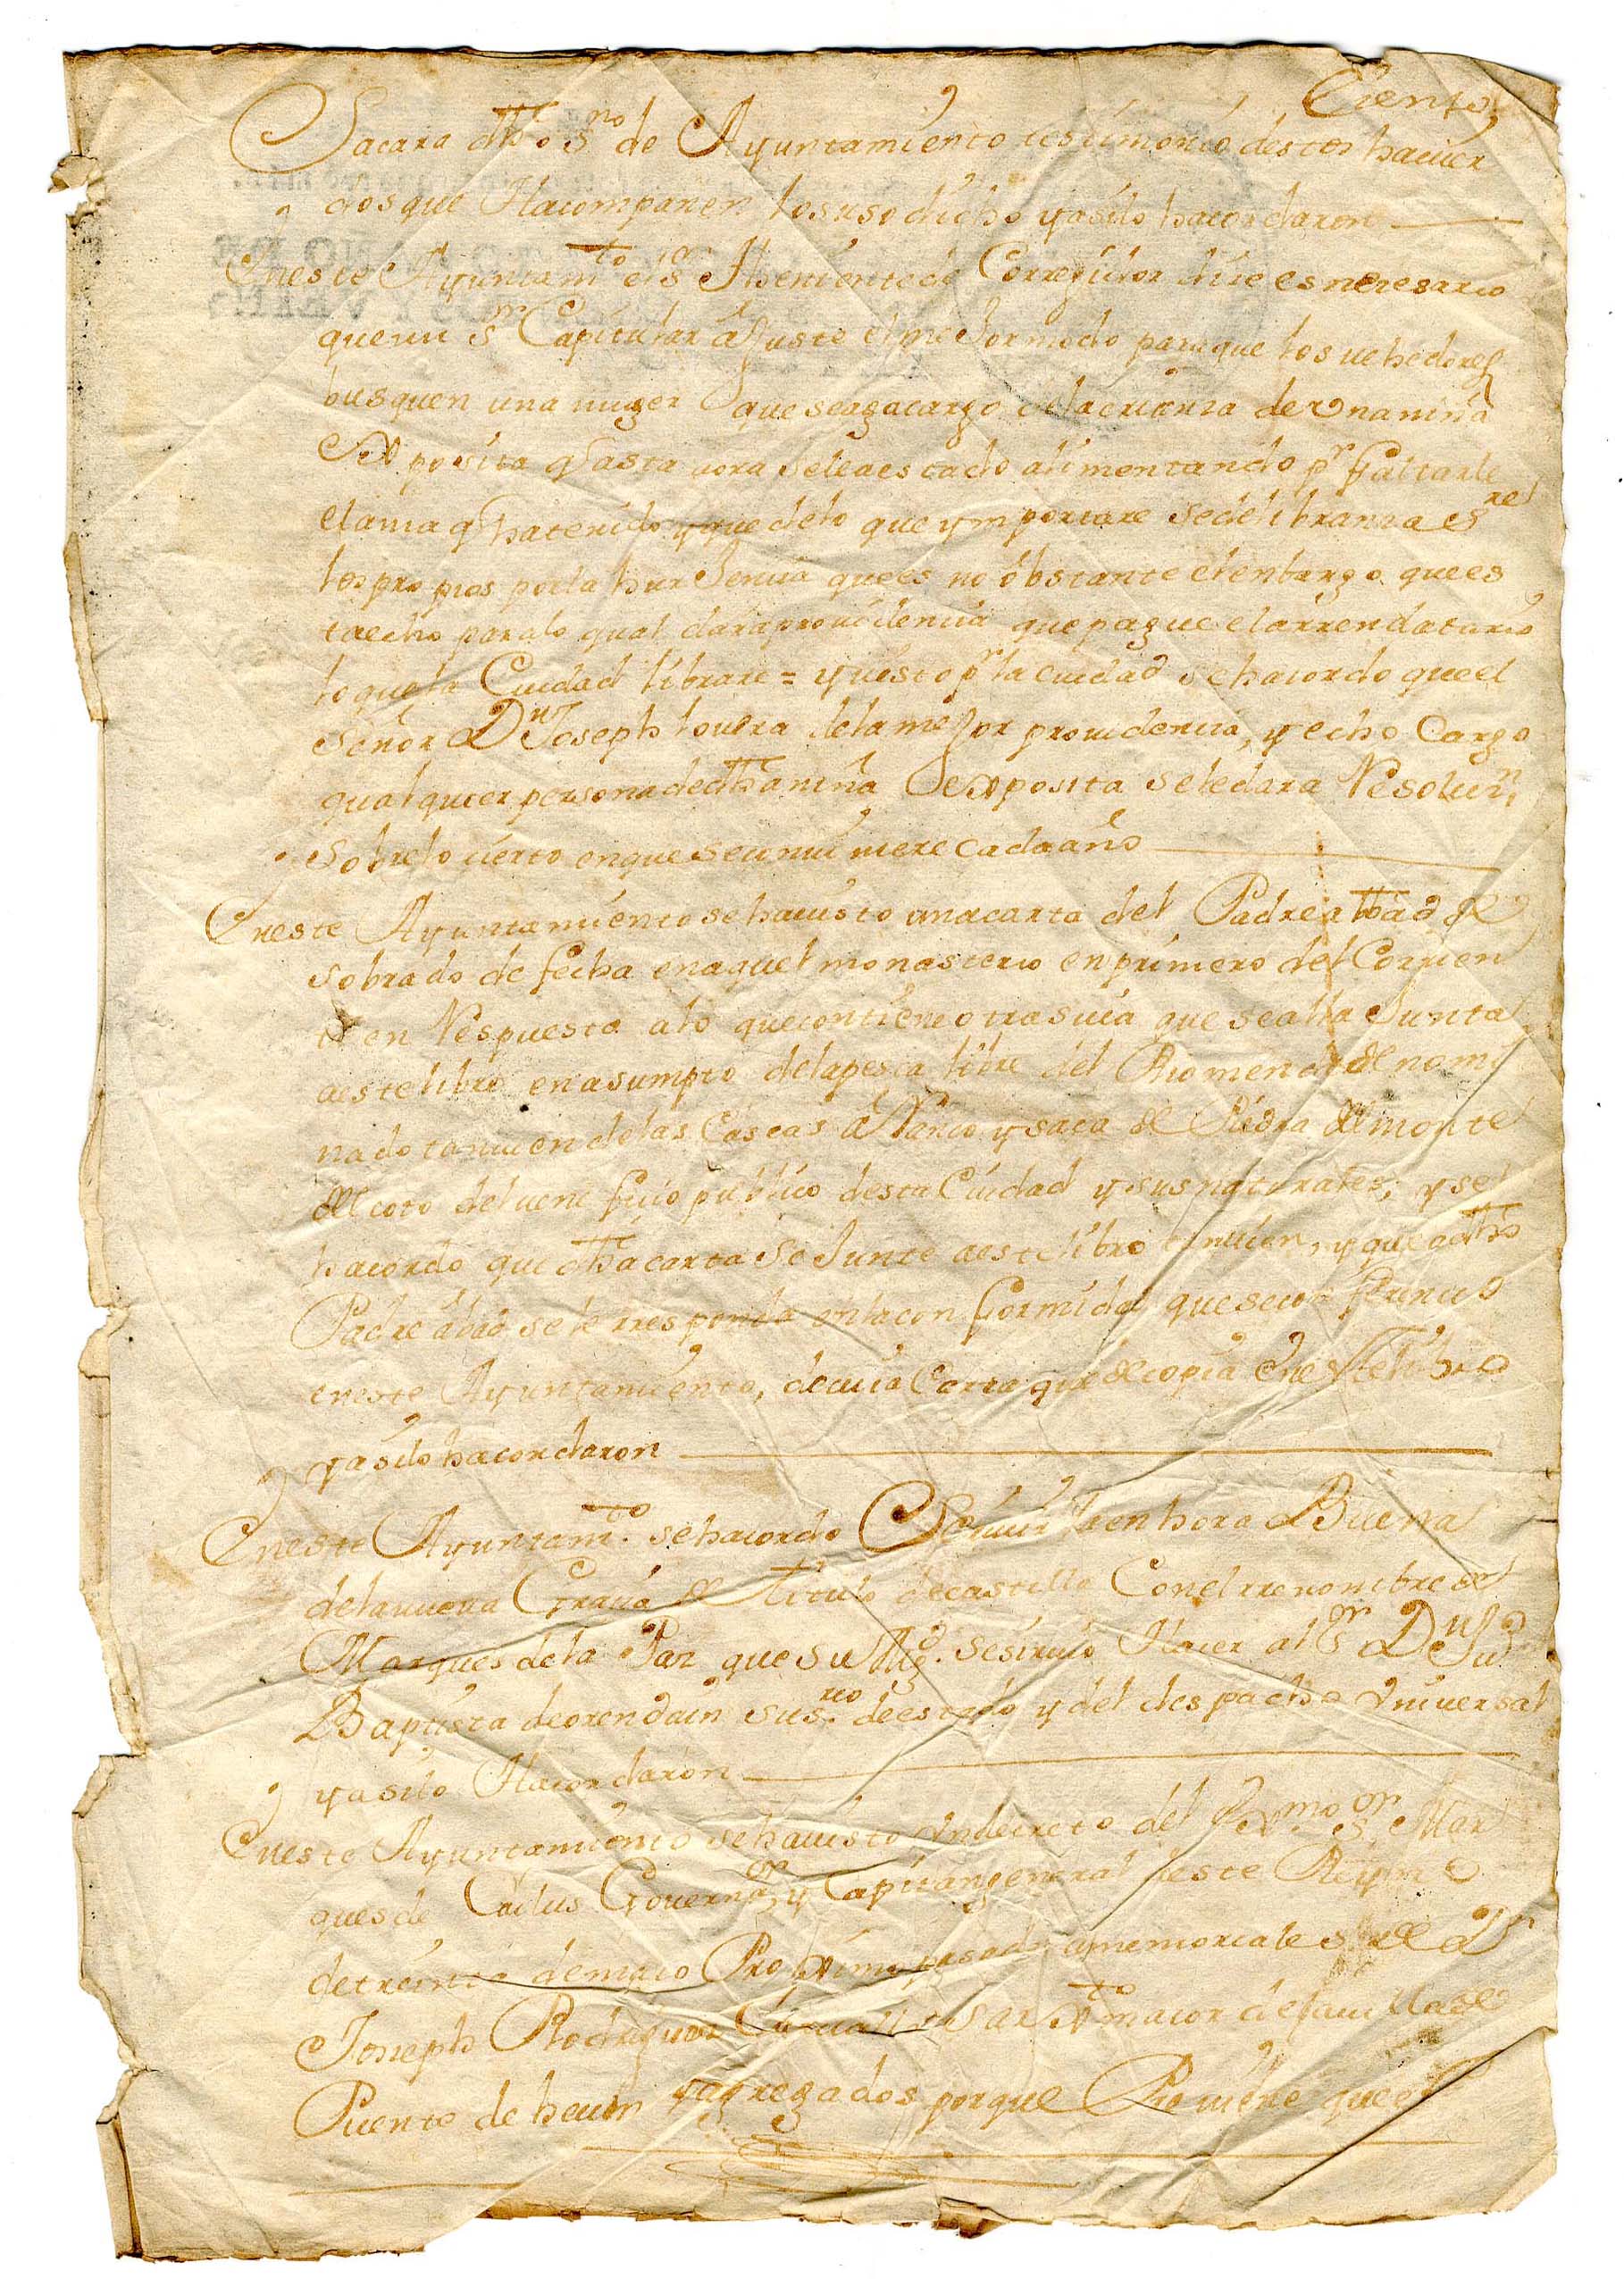 Ciento,
Sacara dho ss.no de Ayuntamiento testimonio destos hacuer
dos que Hacompañen lo suso dicho y asi lo hacordaron
En este Ayuntam.to el s.r Theniente de Corregidor dice es neresario
que un s.r Capitular aJuste el meJor modo para que los vehedores
busquen una muger que se aga cargo de la crianza de una niña
Exposita q asta aora se le a estado alimentando p.r faltarle
el ama q ha tenido y que de lo que ymportare se de libranza
los propios por la hurJencia que es no obstante el enbargo que es
ta echo para lo qual dara providencia que pague el arrendatario
lo que la Ciudad librare = y visto p.r la ciudad se hacordo que el
Señor D.n Joseph lovera de la meJor providencia, y echo Cargo
qualquier persona de dha niña Exposita se le dara Resoluz.n
sobre lo cierto en que se cada año
En este Ayuntamiento se ha visto una carta del Padre abbad de
sobrado de fecha en aquel monasterio en primero del Corrien
te en Respuesta a lo que contiene otra suia que se alla Junta
a este libro en asumpto de la pesca libre del Rio mendo de nomi
nado tanvien de las Cascas a Varco y saca de Piedra del monte
del coto del vene ficio publico desta Ciudad y sus naturales; y se
hacordo que dha carta se Junte a este libro tanvien, y que a dho
Padre abad se le rresponda en la con formidad que se con ferencio
en este Ayuntamiento, de cuia Carta quede copia En este libro
y asi lo hacordaron
En este Ayuntam.to se hacordo Escrivir la en hora Buena
de la nueva Gracia de Titulo de castilla Con el rrenombre de
Marques de la Paz que su Mg.d se sirvio Hacer al S.r D.n Ju.
Baptista de orendain su s.rio de estado y del despacho Universal
y asi lo Hacordaron
En este Ayuntamiento se ha visto un decreto del Ex.mo S.r Mar
ques de Cailus Govern.or y Capitan general deste Reyno
de treinta de maio Proximo pasado a memoriales de D.n
Joseph Rodriguez sarx.to maior de la villa de
Puente de heume y agregados porque Previene que el